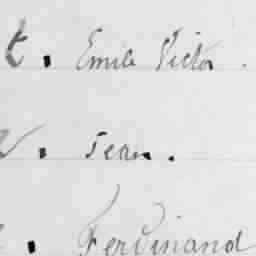 t. Emile Victor.
. Jean.
. Ferdinand